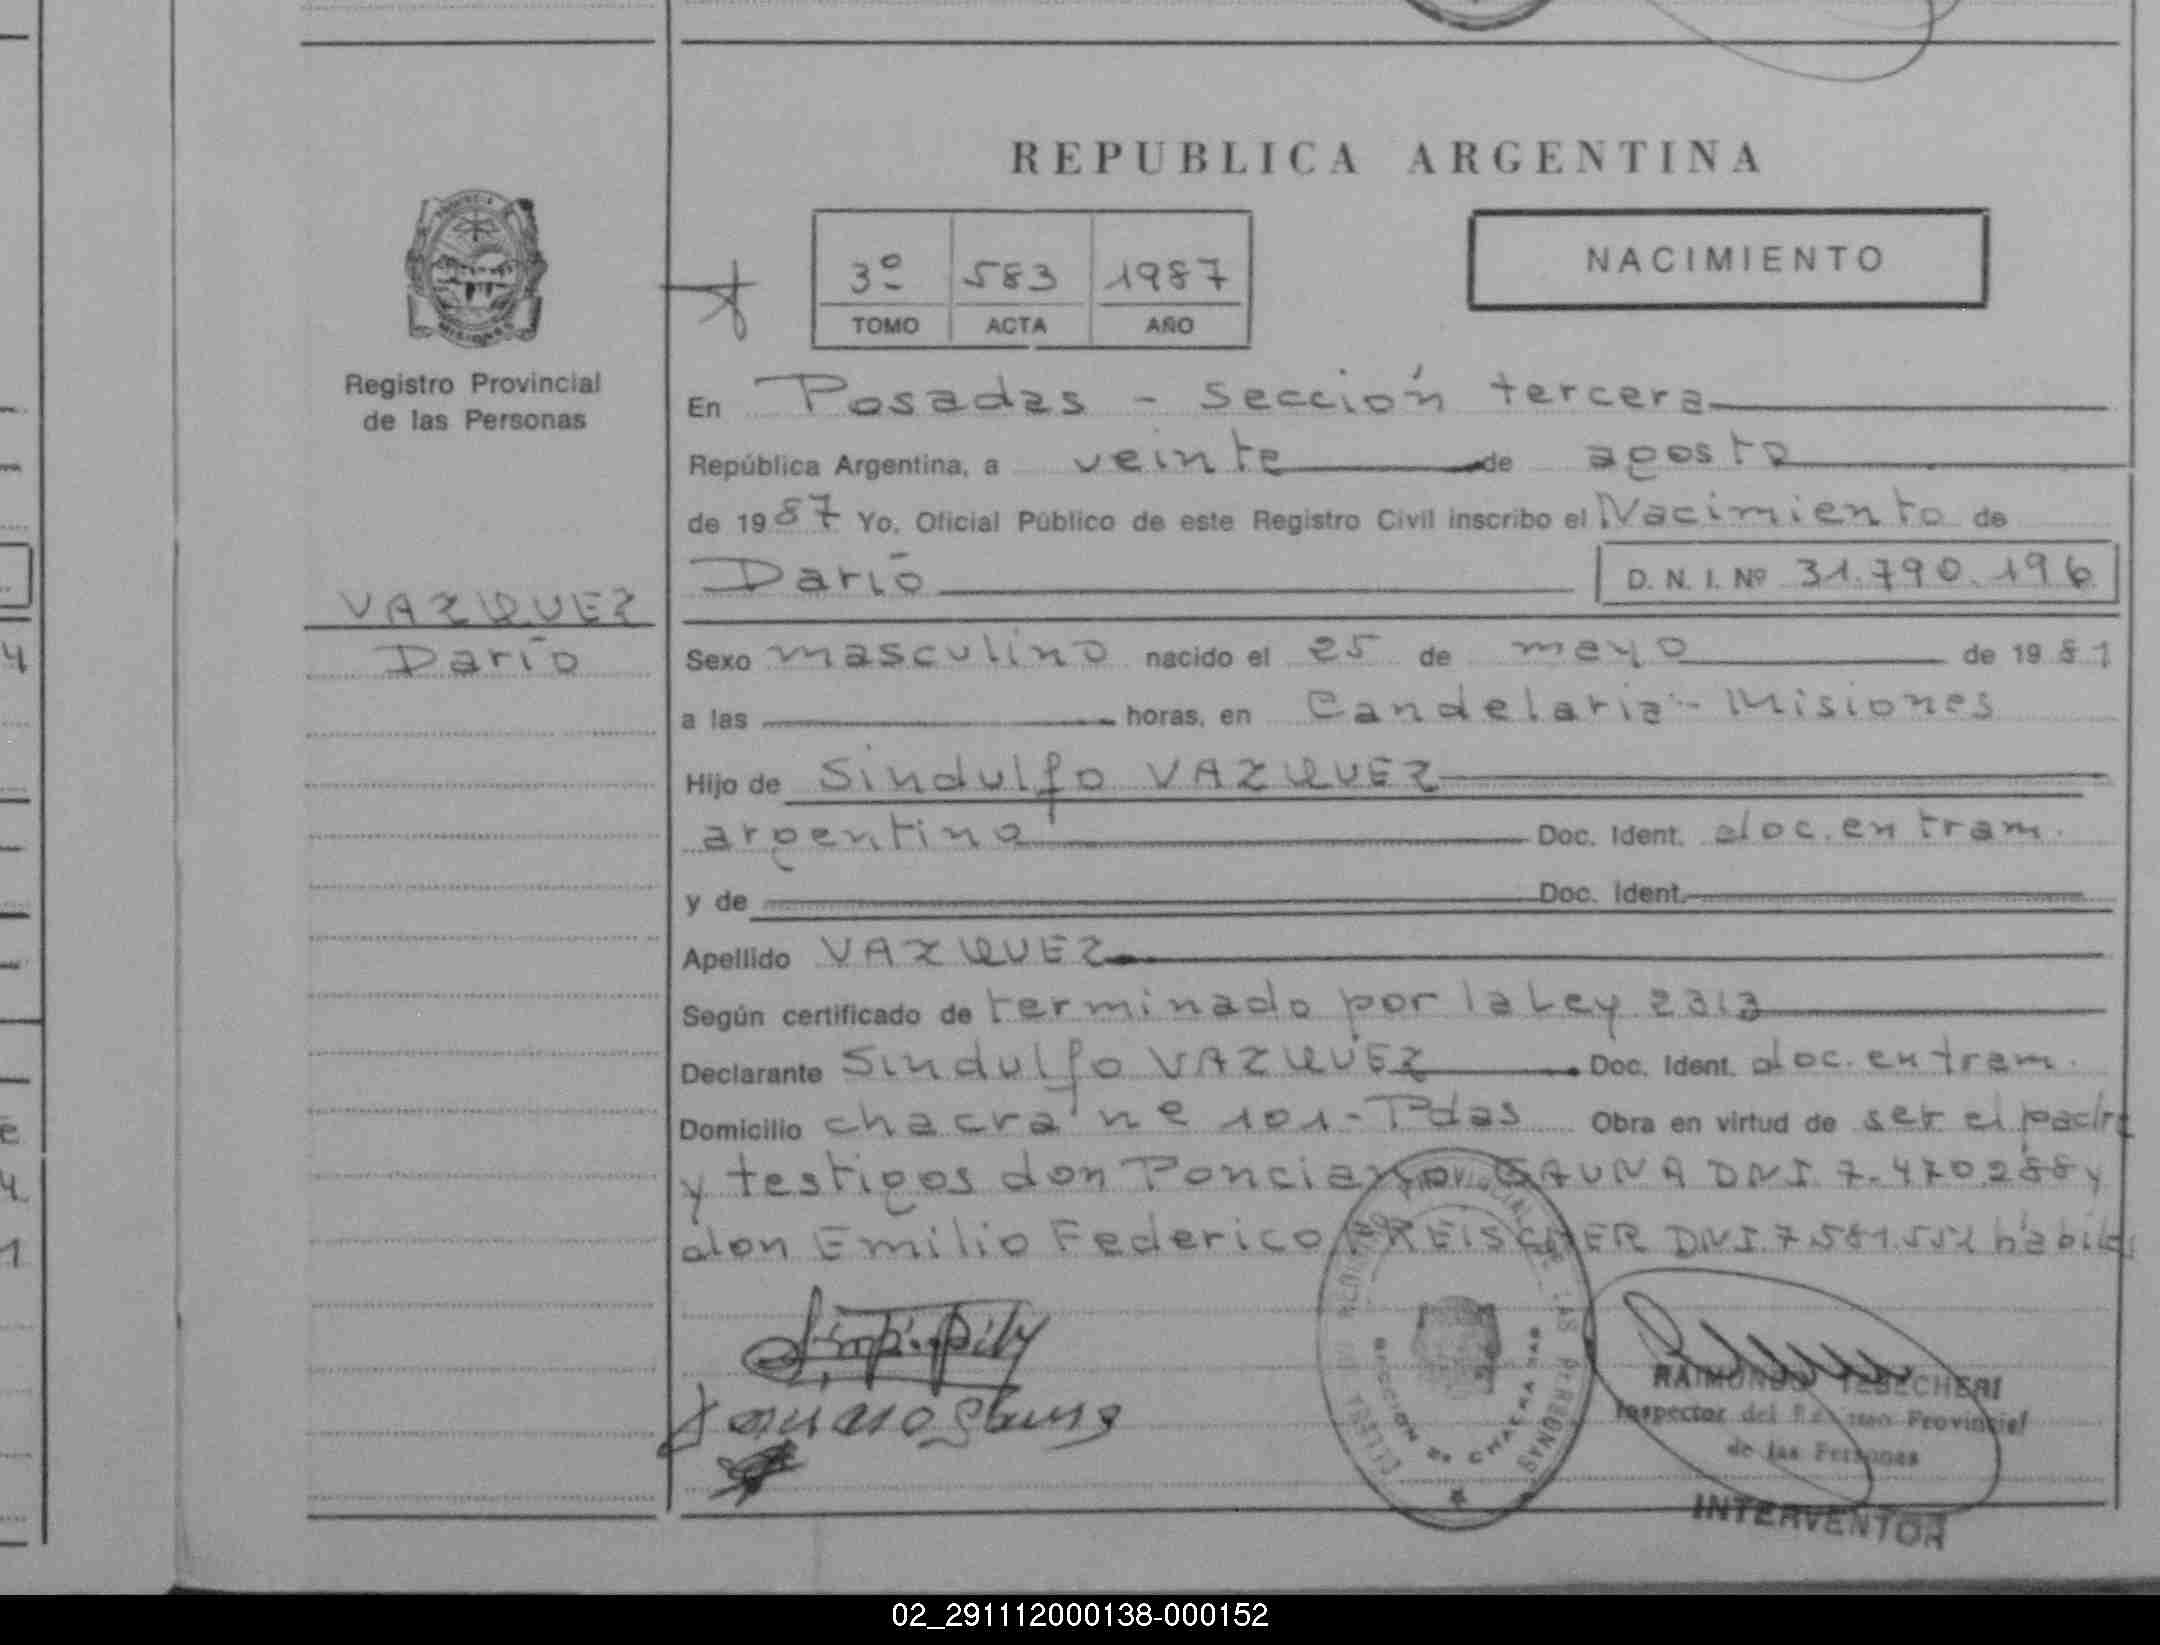 REPUBLICA ARGENTINA
NACIMIENTO
3º 583 1987
TOMO ACTA AÑO
Registro Provincial
de las Personas
VAZQUEZ
Darío
En Posadas - sección tercera
República Argentina, a veinte de agosto
de 1987 Yo, Oficial Público de este Registro Civil inscribo el Nacimiento de
Darío D. N. I. Nº 31.790.196
Sexo masculino nacido el 25 de mayo de 1981
a las horas, en Candelaria - Misiones
Hijo de Sindulfo VAZQUEZ
argentino Doc. Ident. doc. en tram.
y de Doc. Ident.
Apellido VAZQUEZ
Según certificado de terminado por la Ley 2313
Declarante Sindulfo VAZQUEZ Doc. Ident. doc. en tram.
Domicilio chacra nº 101 - Pdas Obra en virtud de ser el padre
y testigos don Ponciano GAUNA DNI. 7.470.288 y
don Emilio Federico DNI. 7.581.551 hábiles
REGISTRO PROVINCIAL DE LAS PERSONAS
RAIMUNDO TEBECHERI
Inspector del Provincial
de las Personas
INTERVENTOR
02_291112000138-000152